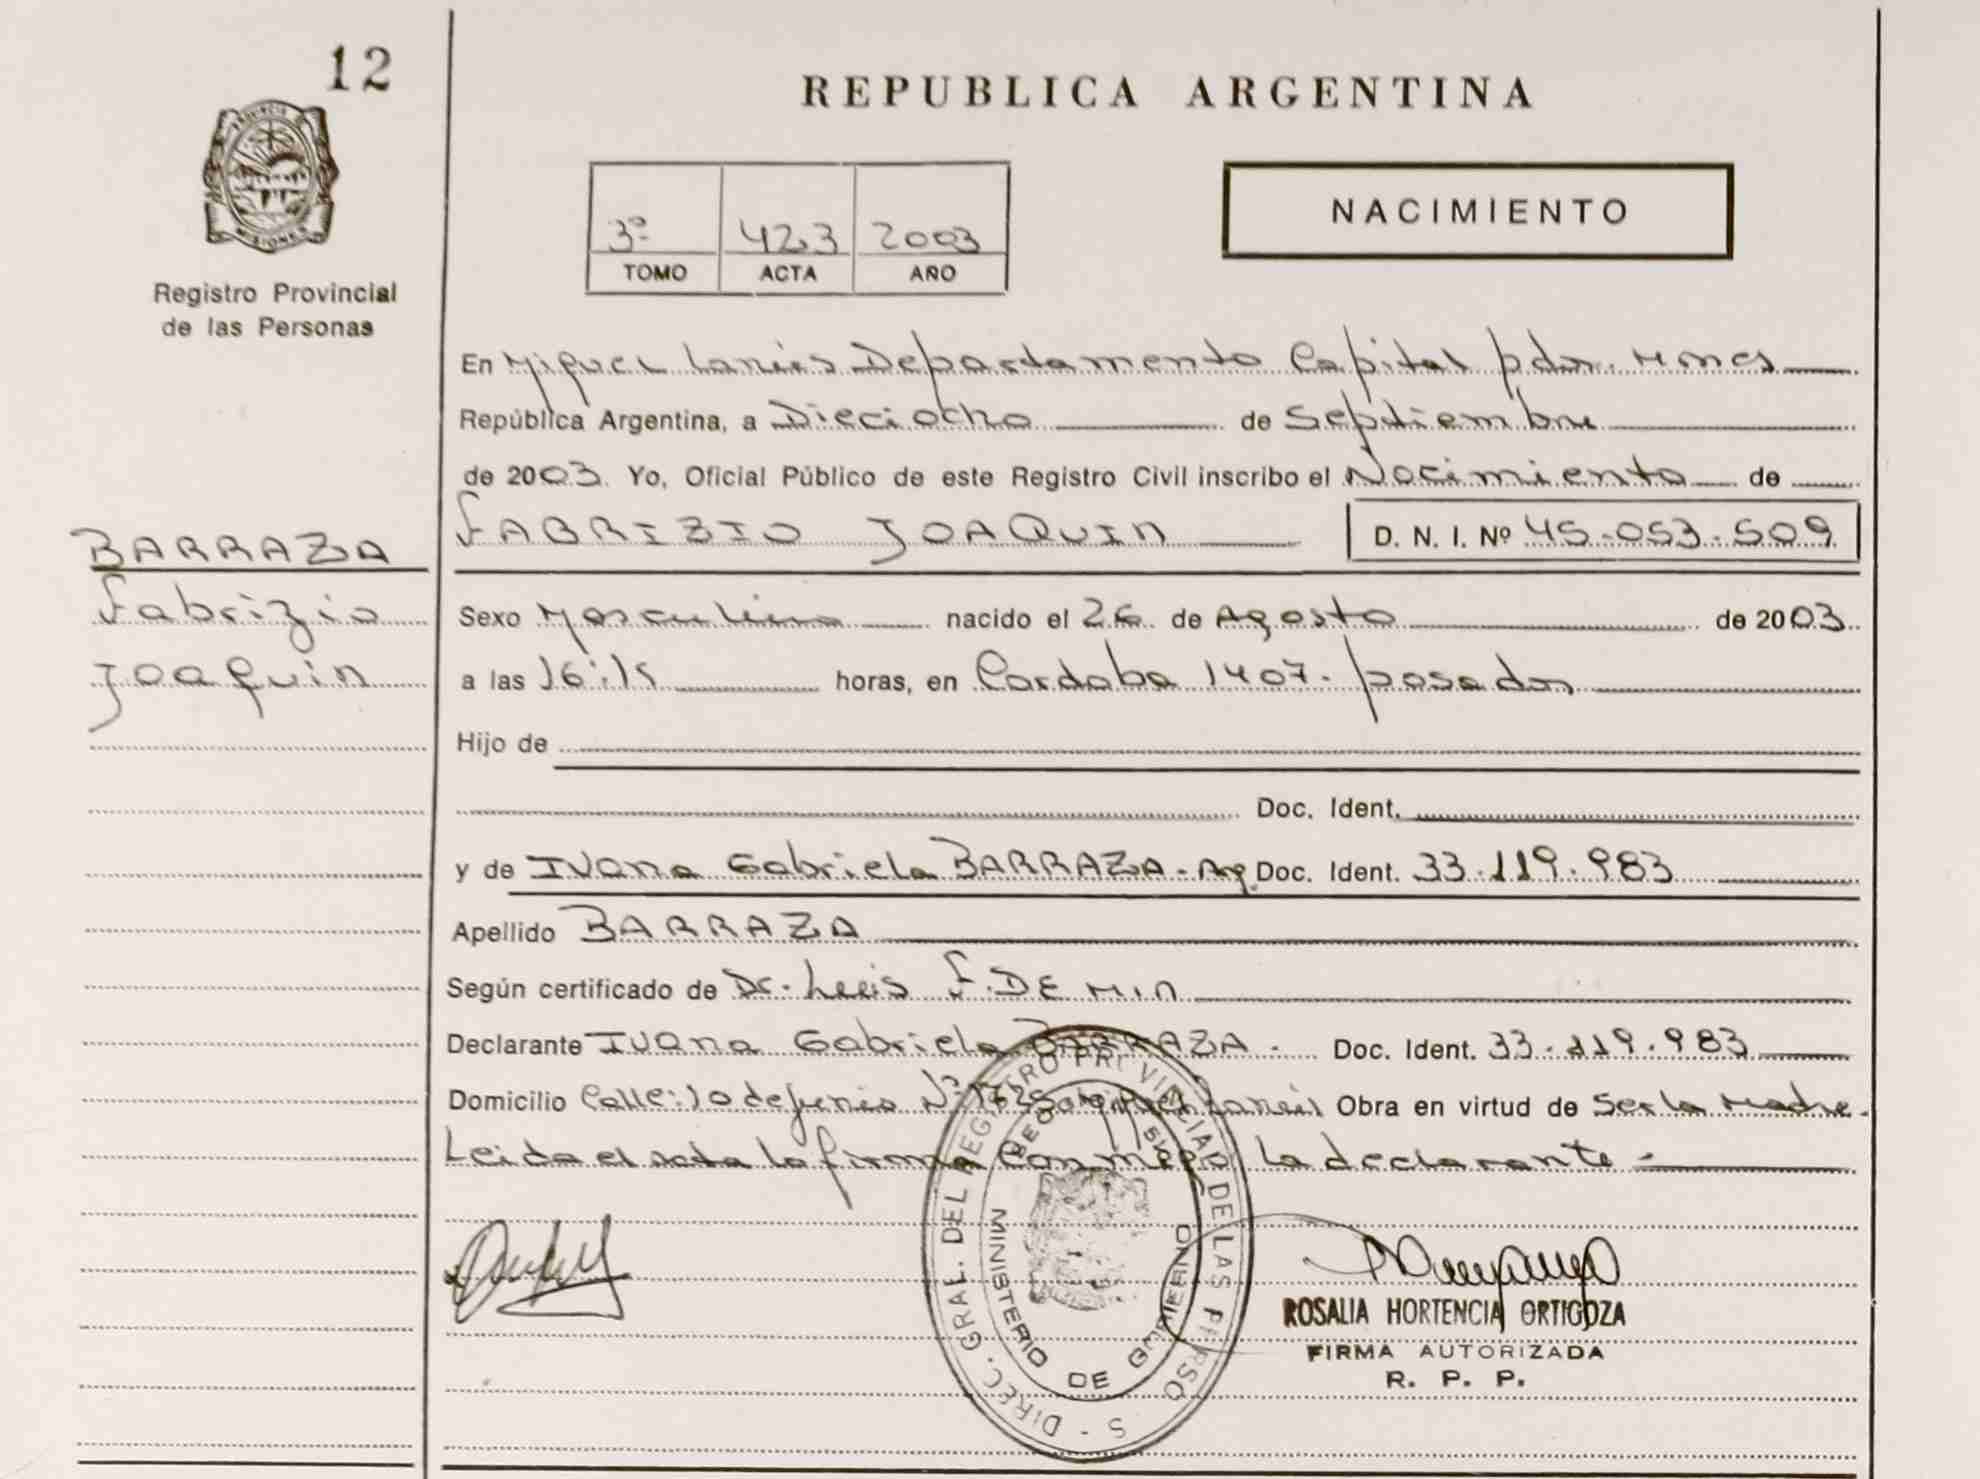 12
REPUBLICA ARGENTINA
PROVINCIA
MISIONES
Registro Provincial
de las Personas
3º 423 2003
TOMO ACTA AÑO
NACIMIENTO
En Miguel Lanús Departamento Capital pdas. Mnes
República Argentina, a Dieciocho de Septiembre
de 2003. Yo, Oficial Público de este Registro Civil inscribo el Nacimiento de
FABRIZIO JOAQUIN D. N. I. Nº 45.053.509
BARRAZA
Fabrizio
Joaquin
Sexo Masculino nacido el 26 de Agosto de 2003.
a las 16:15 horas, en Cordoba 1407. posadas
Hijo de
Doc. Ident.
y de Ivana Gabriela BARRAZA - Arg. Doc. Ident. 33.119.983
Apellido BARRAZA
Según certificado de Dr. Luis F. DE MIN
Declarante Ivana Gabriela BARRAZA. Doc. Ident. 33.119.983
Domicilio Calle: 10 de junio Nº Lanús Obra en virtud de Ser la Madre.
Leida el acta la firma con migo la declarante.
DIREC. GRAL. DEL REGISTRO PROVINCIAL DE LAS PERSONAS
MINISTERIO DE GOBIERNO
ROSALIA HORTENCIA ORTIGOZA
FIRMA AUTORIZADA
R. P. P.